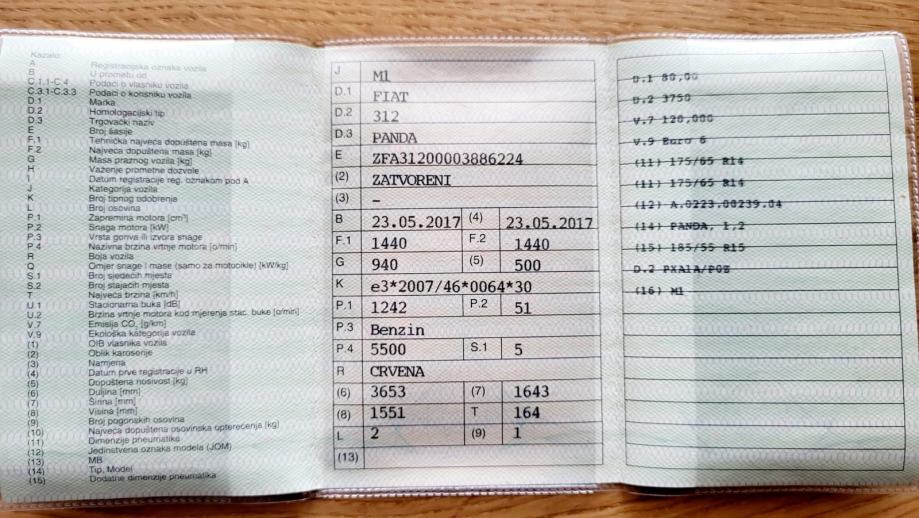 Kazalo:
A Registracijska oznaka vozila
B U prometu od
C.1.1-C.4 Podaci o vlasniku vozila
C.3.1-C.3.3 Podaci o korisniku vozila
D.1 Marka
D.2 Homologacijski tip
D.3 Trgovački naziv
E Broj šasije
F.1 Tehnička najveća dopuštena masa [kg]
F.2 Najveća dopuštena masa [kg]
G Masa praznog vozila [kg]
H Važenje prometne dozvole
I Datum registracije reg. oznakom pod A
J Kategorija vozila
K Broj tipnog odobrenja
L Broj osovina
P.1 Zapremina motora [cm³]
P.2 Snaga motora [kW]
P.3 Vrsta goriva ili izvora snage
P.4 Nazivna brzina vrtnje motora [o/min]
R Boja vozila
Q Omjer snage i mase (samo za motocikle) [kW/kg]
S.1 Broj sjedećih mjesta
S.2 Broj stajaćih mjesta
T Najveća brzina [km/h]
U.1 Stacionarna buka [dB]
U.2 Brzina vrtnje motora kod mjerenja stac. buke [o/min]
V.7 Emisija CO₂ [g/km]
V.9 Ekološka kategorija vozila
(1) OIB vlasnika vozila
(2) Oblik karoserije
(3) Namjena
(4) Datum prve registracije u RH
(5) Dopuštena nosivost [kg]
(6) Duljina [mm]
(7) Širina [mm]
(8) Visina [mm]
(9) Broj pogonskih osovina
(10) Najveća dopuštena osovinska opterećenja [kg]
(11) Dimenzije pneumatika
(12) Jedinstvena oznaka modela (JOM)
(13) MB
(14) Tip, Model
(15) Dodatne dimenzije pneumatika
J M1
D.1 FIAT
D.2 312
D.3 PANDA
E ZFA31200003886224
(2) ZATVORENI
(3) –
B 23.05.2017 (4) 23.05.2017
F.1 1440 F.2 1440
G 940 (5) 500
K e3*2007/46*0064*30
P.1 1242 P.2 51
P.3 Benzin
P.4 5500 S.1 5
R CRVENA
(6) 3653 (7) 1643
(8) 1551 T 164
L 2 (9) 1
(13)
U.1 80,00
U.2 3750
V.7 120,000
V.9 Euro 6
(11) 175/65 R14
(11) 175/65 R14
(12) A.0223.00239.04
(14) PANDA, 1,2
(15) 185/55 R15
D.2 PXA1A/P0Z
(16) M1